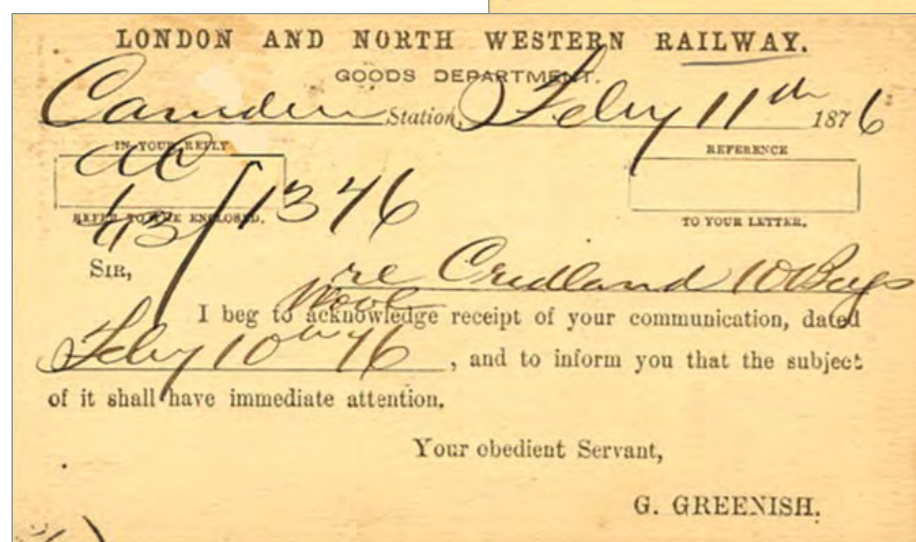 LONDON AND NORTH WESTERN RAILWAY.
GOODS DEPARTMENT.
Camden Station, Feby 11th 1876
IN YOUR REPLY
REFERENCE
43/1346
REFER TO THE ENCLOSED.
TO YOUR LETTER.
SIR,
re Cridland 10 Bags
Wool
I beg to acknowledge receipt of your communication, dated
Feby 10th 76, and to inform you that the subject
of it shall have immediate attention.
Your obedient Servant,
G. GREENISH.